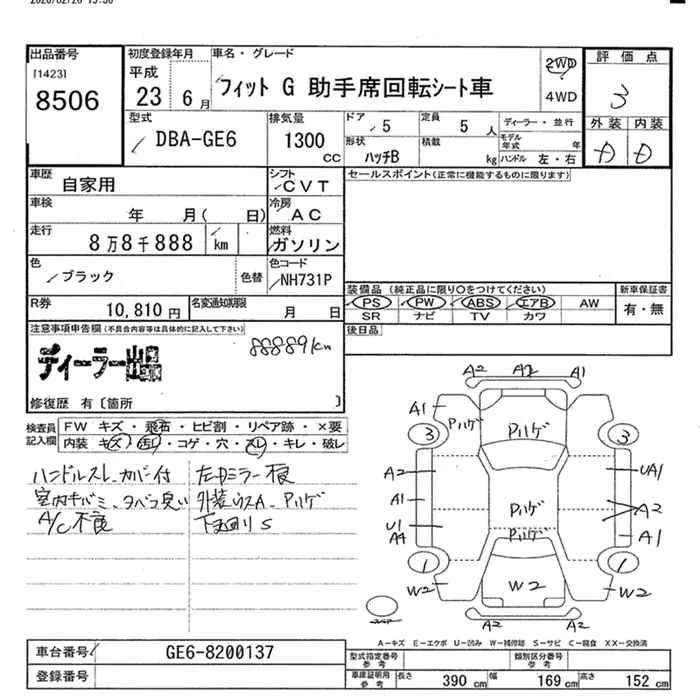 出品番号
[1423]
8506
初度登録年月
平成
23 6 月
車名・グレード
フィット G 助手席回転シート車
2WD
4WD
評 価 点
3
外 装 内 装
D D
型式
DBA-GE6
排気量
1300
CC
ドア
5
定員
5 人
ディーラー・並行
形状
ハッチB
積載
kg
モデル年式 年
ハンドル 左・右
車歴
自家用
シフト
CVT
セールスポイント(正常に機能するものに限ります)
車検
年 月( 日)
冷房
AC
走行
8万8千888 km
燃料
ガソリン
色
ブラック
色替
色コード
NH731P
装備品 (純正品に限り○をつけてください)
PS PW ABS エアB AW
SR ナビ TV カワ
新車保証書
有・無
R券
10,810 円
名変通知期限
月 日
後日品
注意事項申告欄(不具合内容等は具体的に記入して下さい)
ディーラー出品
88889km
修復歴 有〔箇所 〕
検査員記入欄
FW キズ・飛石・ヒビ割・リペア跡・×要
内装 キズ・汚・コゲ・穴・スレ・キレ・破レ
ハンドルスレ、カバー付
室内キバミ、タバコ臭い
A/C不良
左Dミラー不良
外装ウスA、Pハゲ
下回りS
A2 A2 A1
A1 Pハゲ Pハゲ
3 3
A2 UA1
A1 Pハゲ A2
U1 A4 Pハゲ A1
1 1
W2 W2 W2
A2 A2
A-キズ E-エクボ U-凹み W-補修跡 S-サビ C-腐食 XX-交換済
車台番号
GE6-8200137
登録番号
型式指定番号
参考
類別区分番号
参考
車庫証明用
参考
長さ 390 cm 幅 169 cm 高さ 152 cm